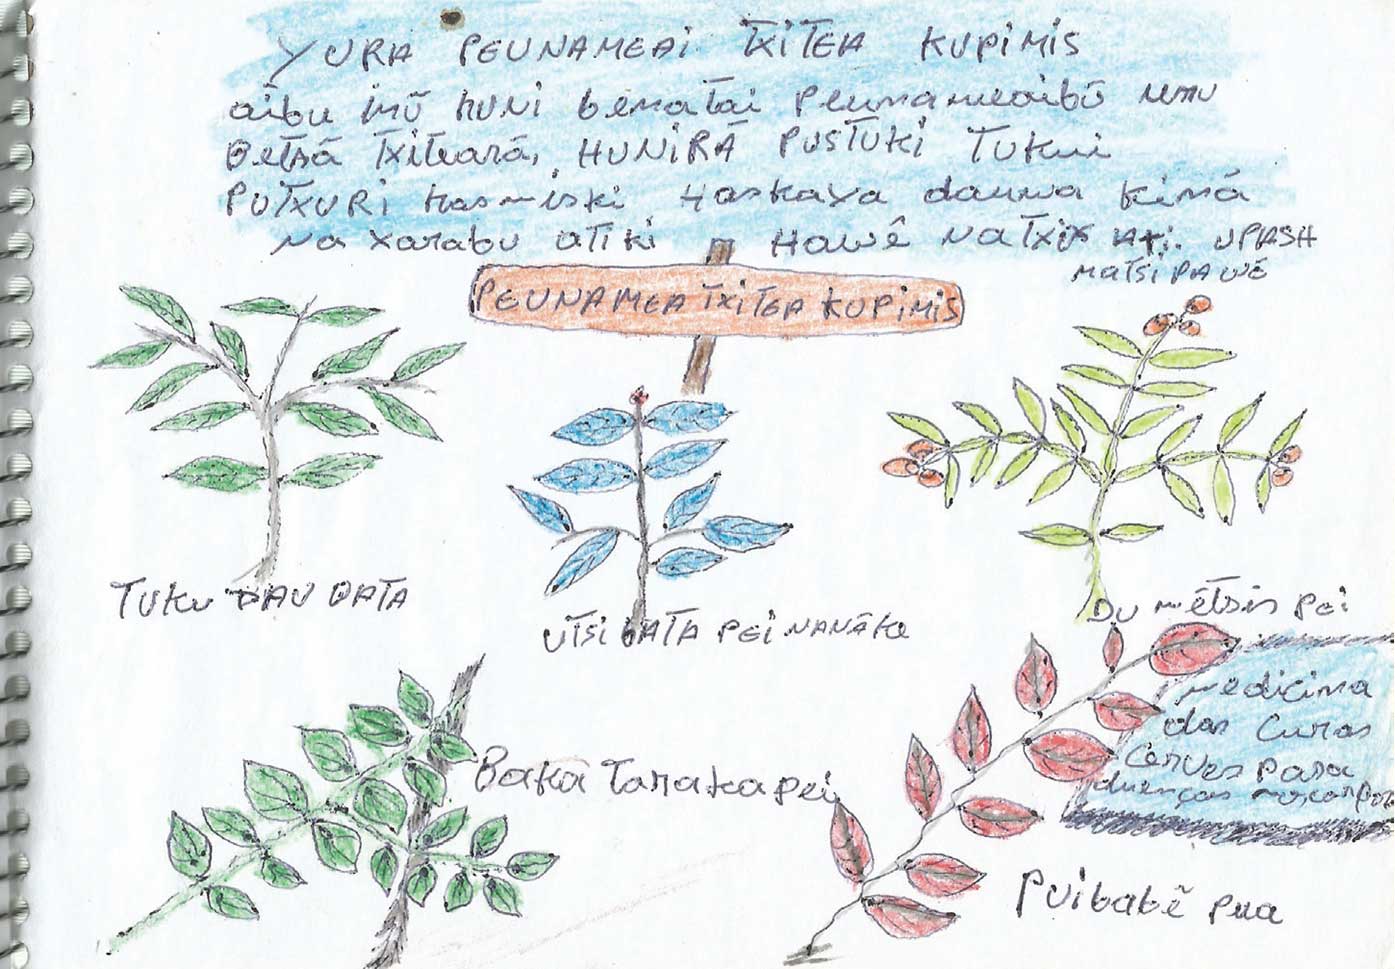 YURA PEUNAMEAI TXITEA KUPIMIS
aĩbu inũ huni bematai Peunameaibũ
Betsã txiteará, HUNIRÃ PUSTUKI TUKUI
PUTXURI kasmiski Haskaya dauwa kinã
na xarabu atiki Hawẽ NATXIX ati. UPASH
matsi pawẽ
PEUNAMEA TXITEA KUPIMIS
TUKU DAU BATA
UTSI BATA PEI NANÃKE
DU mẽtsis pei
Baka Tarakapei
medicina
das Curas
Cerves para
duenças
Puibabẽ pua